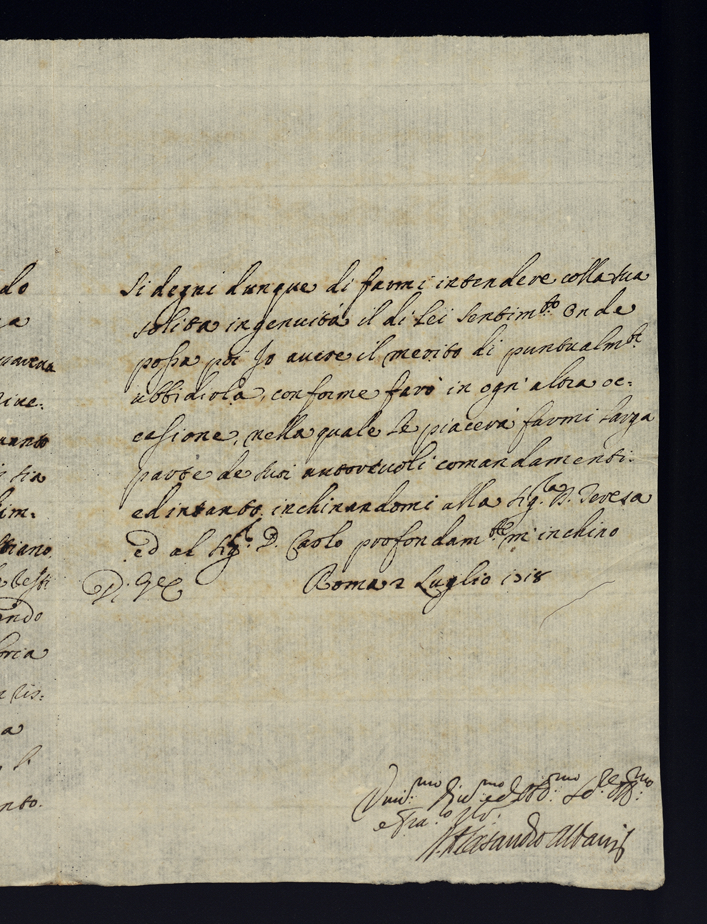 do
a
Si degni dunque di farmi intendere colla sua
solita ingenuità il di Lei Sentim.to Onde
possa poi Io avere il merito di puntualm.te
ubbidirla, conforme farò in ogn'altra oc=
casione, nella quale Le piacerà farmi larga
parte de suoi autorevoli comandamenti.
ed intanto inchinandomi alla Sig.ra D. Teresa
ed al Sig.r D. Carlo profondam.te m'inchino
Roma 2 Luglio 1718
anto
im:
tiano
ando
a
nto.
Umil.mo Div.mo ed Obb.mo
Alesandro Albani